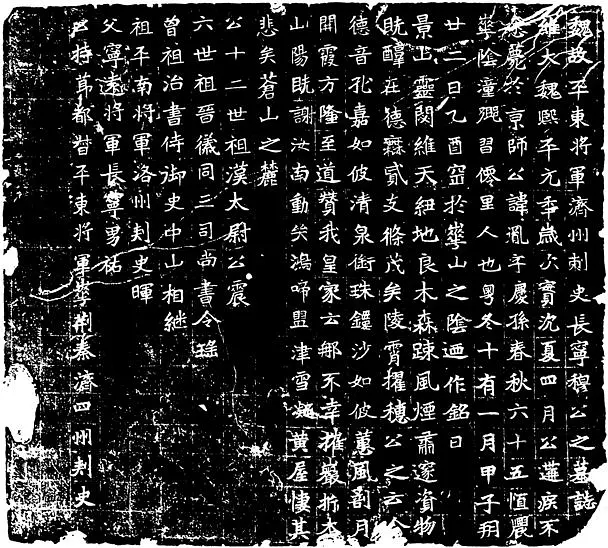 魏故平東將軍濟州刺史長寧穆公之墓誌
維大魏熙平元年歲次實沈夏四月公遘疾不
悆薨於京師公諱胤字慶孫春秋六十五恒農
華陰潼鄉習僊里人也粵冬十有一月甲子朔
廿二日乙酉窆於華山之陰迺作銘曰
景山靈閟維天紐地良木森疎風煙邃資物
貺醇在德霏貳支條茂矣陵霄擢穗公之云
德音孔嘉如彼清泉銜珠鏗沙如彼蕙風割月
開霞方隆至道贊我皇家云那不幸摧巖折木
山陽既謝汝南動矣鴻啼盟津雪黄屋悽其
悲矣蒼山之麓
公十二世祖漢太尉公震
六世祖晉儀同三司尚書令瑤
曾祖治書侍御史中山相継
祖平南將軍洛州刺史暉
父寧遠將軍長寧男祐
持節都督平東將軍華荆秦濟四州刺史